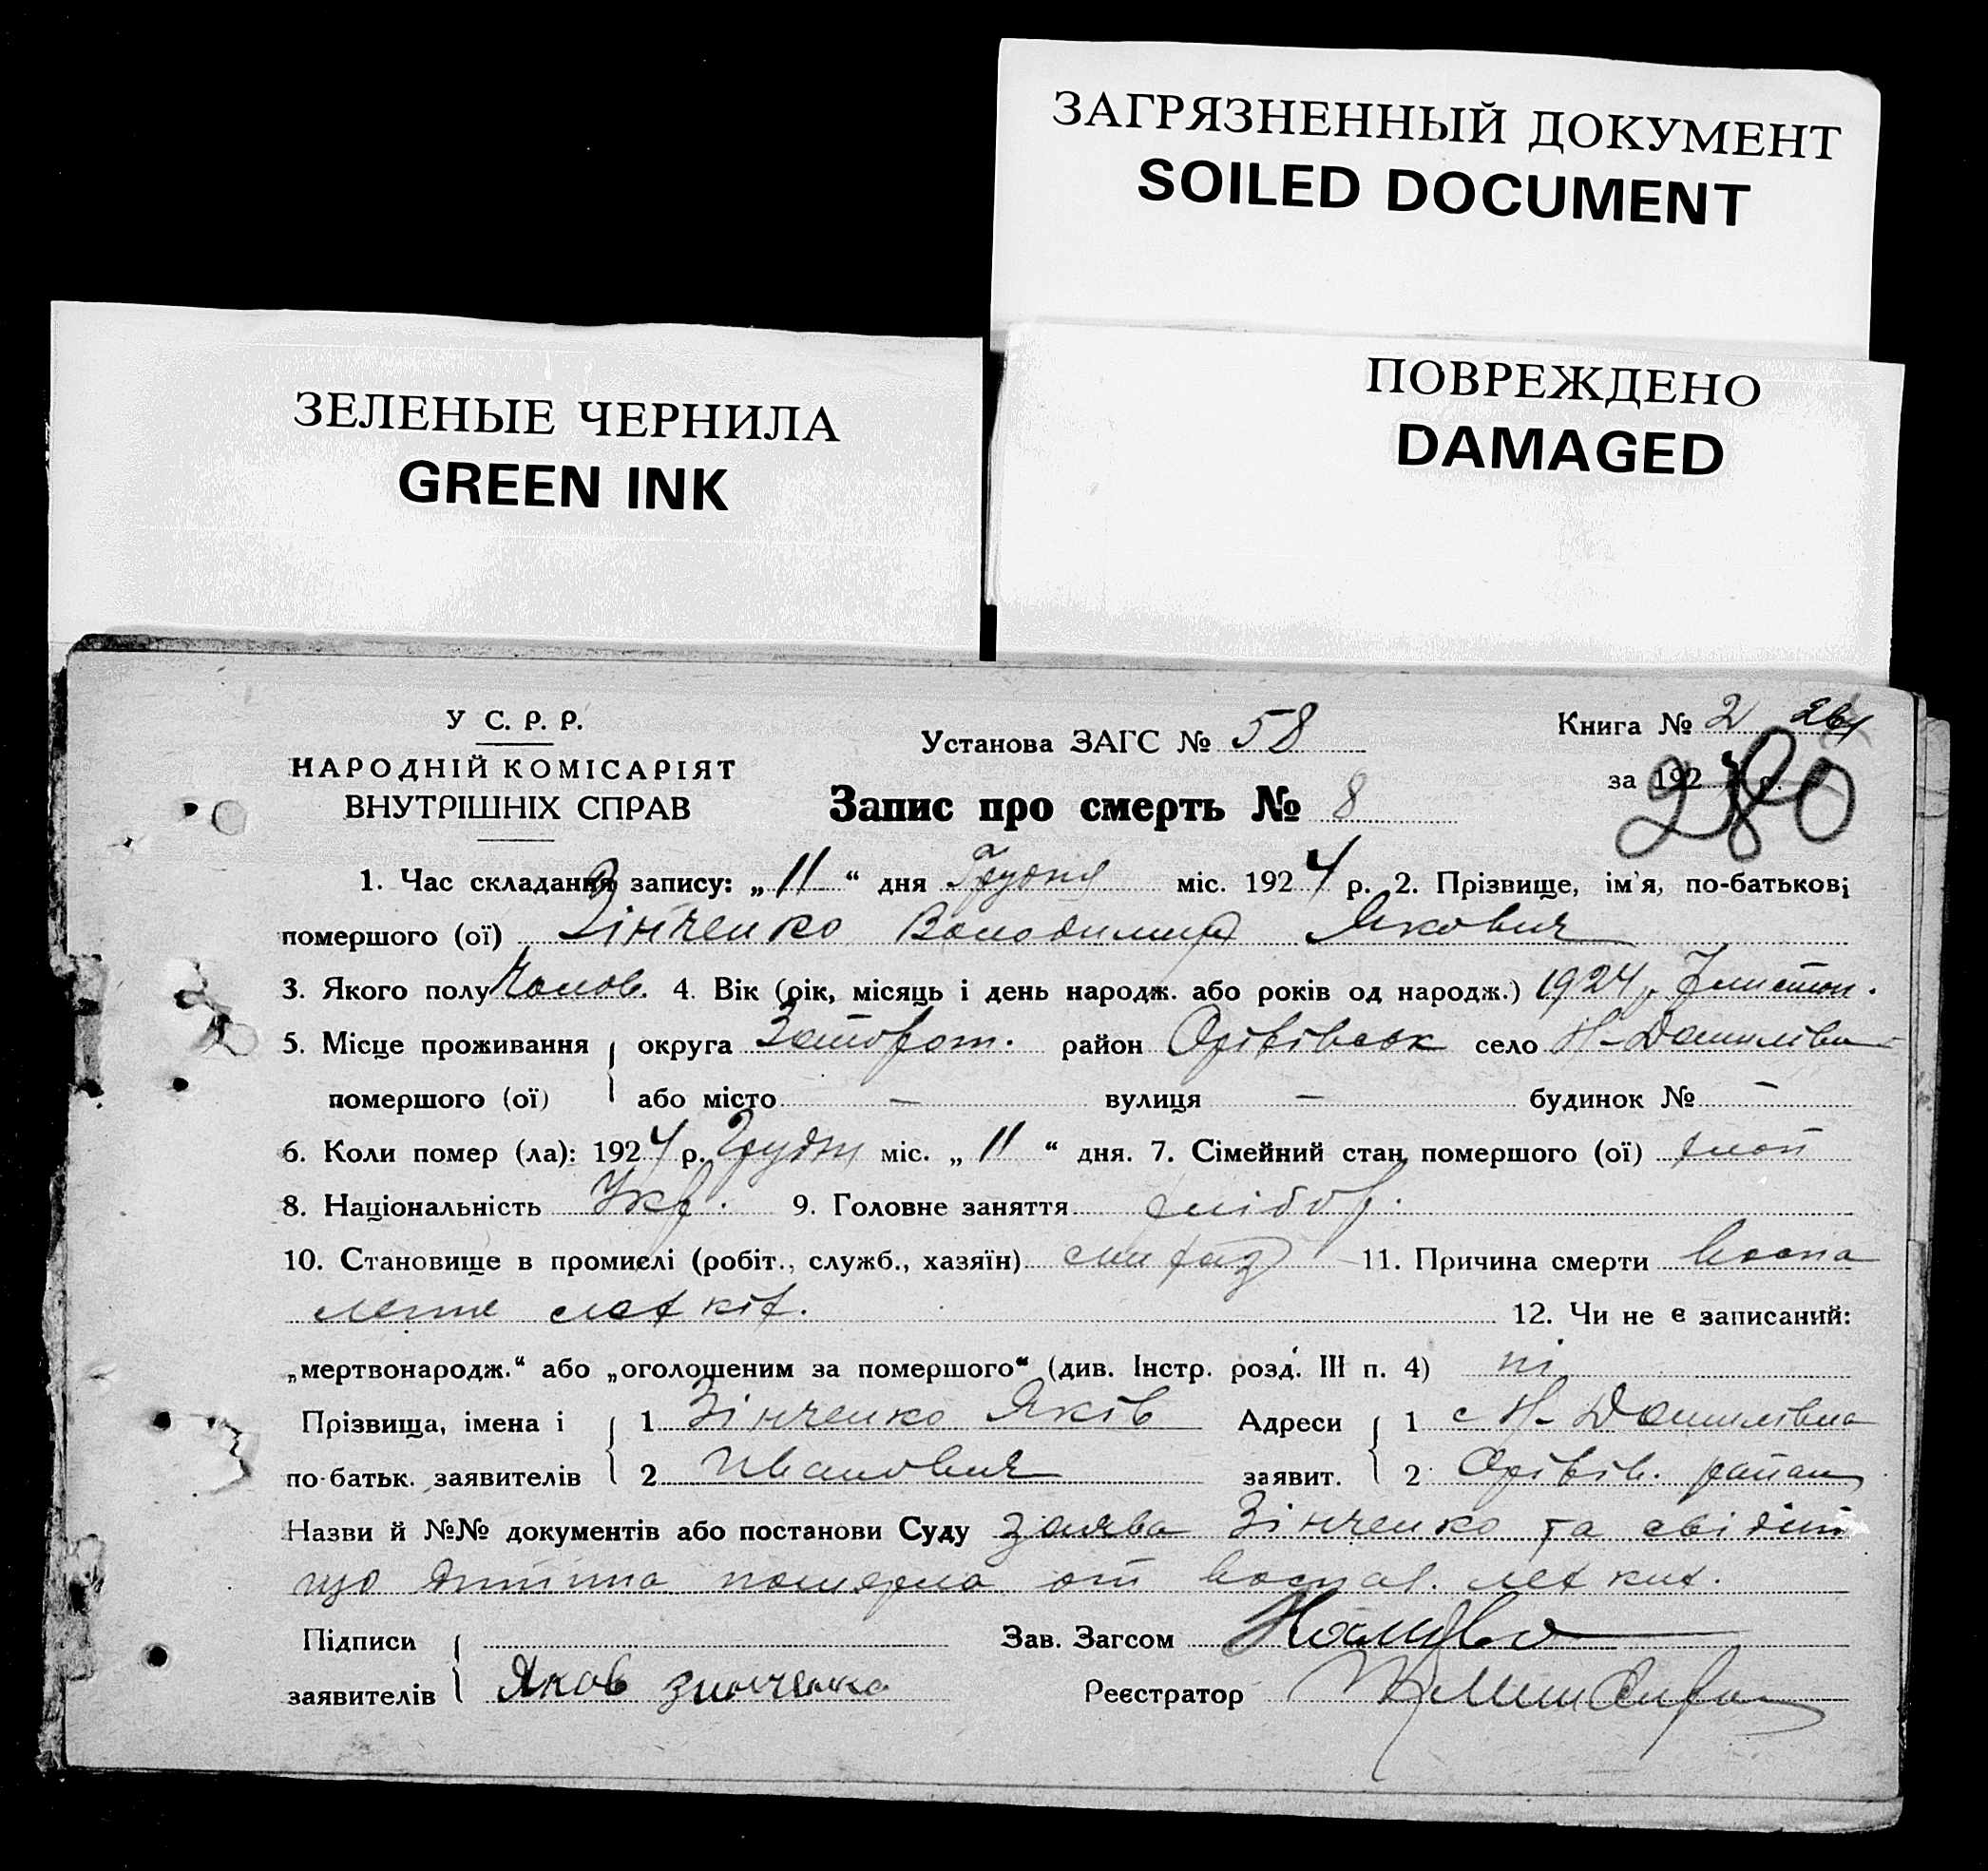 ЗАГРЯЗНЕННЫЙ ДОКУМЕНТ
SOILED DOCUMENT
ПОВРЕЖДЕНО
DAMAGED
ЗЕЛЕНЫЕ ЧЕРНИЛА
GREEN INK
У С. Р. Р.
НАРОДНІЙ КОМІСАРІЯТ
ВНУТРІШНІХ СПРАВ
Установа ЗАГС № 58
Книга № 2
за 192 р.
280
Запис про смерть № 8
1. Час складання запису: „ 11 “ дня Грудня міс. 1924 р. 2. Прізвище, ім'я, по-батькові
помершого (ої) Зінченко Володимир Якович
3. Якого полу Чолов. 4. Вік (рік, місяць і день народж. або років од народж.) 1924 р.
5. Місце проживання округа Запорож. район Оріхівськ село Н-Данилівка
помершого (ої) або місто — вулиця — будинок № —
6. Коли помер (ла): 1924 р. Грудня міс. „ 11 “ дня. 7. Сімейний стан помершого (ої)
8. Національність Укр. 9. Головне заняття хлібор.
10. Становище в промислі (робіт., служб., хазяїн) 11. Причина смерти воспа
ление легких.
12. Чи не є записаний:
„мертвонародж.“ або „оголошеним за помершого“ (див. Інстр. розд. III п. 4) ні
Прізвища, імена і 1 Зінченко Яків Адреси 1 с Н-Данилівка
по-батьк. заявителів 2 Иванович заявит. 2 Оріхів. район
Назви й №№ документів або постанови Суду заява Зінченко та
що дитина померла от воспал. легких.
Підписи Зав. Загсом
заявителів Яков зинченко Реєстратор